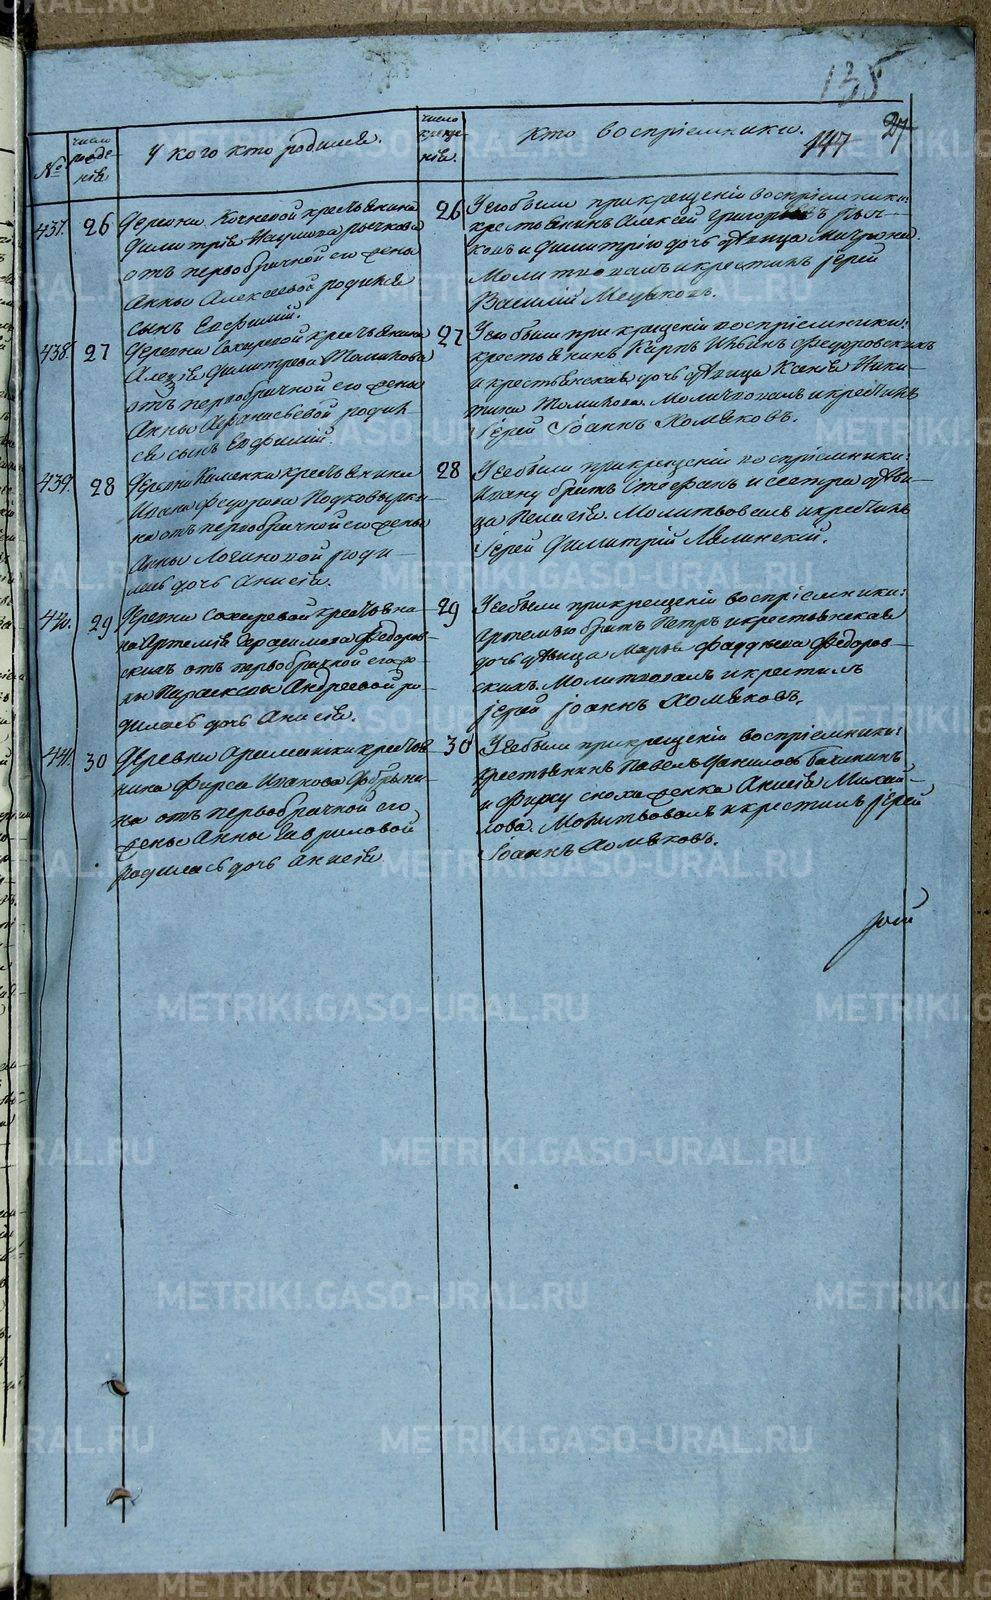 135
147
27
№
число рожде-нія
У кого кто родился.
число креще-нія.
кто воспріемники.
437.
26
Деревни Кочневой крестьянина
Димитрія
Рычкова
отъ первобрачной его жены
Анны Алексеевой родился
сынъ Евфимій.
26
У сего были при крещеніи воспріемники:
крестьянинъ Алексей Григорьевъ Рыч-
ковъ и Димитрію дочь дѣвица Матрона.
Молитвовалъ и крестилъ іерей
Василій
438.
27
Деревни Сохиревой крестьянина
Алексія Димитріева Томилова
отъ первобрачной его жены
Анны Афанасьевой родил
ся сынъ Евфимій.
27
У сего были при крещеніи воспріемники:
крестьянинъ Карпъ Федоровскихъ
и крестьянская дочь дѣвица Ксенія Ники-
тина Томилова. Молитвовалъ и крестилъ
Іерей Іоаннъ Хомяковъ.
439.
28
Деревни Каменки крестьянина
Ивана Федорова Подковырки-
на отъ первобрачной его жены
Анны Логиновой роди-
лась дочь Анисія.
28
У сей были при крещеніи воспріемники:
Ивану братъ Стефанъ и сестра дѣви-
ца Пелагія. Молитвовалъ и крестилъ
Іерей Димитрій Лялинскій.
440.
29
Деревни Сохиревой крестьяни
на Артемія Герасимова Федоров-
скихъ отъ первобрачной его же-
ны Параскевы Андреевой ро-
дилась дочь Анисія.
29
У сей были при крещеніи воспріемники:
Артемью братъ Петръ и крестьянская
дочь дѣвица Марья Фаддеева Федоров-
скихъ. Молитвовалъ и крестилъ
іерей Іоаннъ Хомяковъ.
441.
30
Деревни Гремячки крестья
нина Фирса Исакова Добрыни-
на отъ первобрачной его
жены Анны Гавриловой
родилась дочь Анисія.
30
У сей были при крещеніи воспріемники:
крестьянинъ Павелъ Даниловъ Бачининъ
и Фирсу сноха женка Анисія Михай-
лова. Молитвовалъ и крестилъ іерей
Іоаннъ Хомяковъ.
METRIKI.GASO-URAL.RU